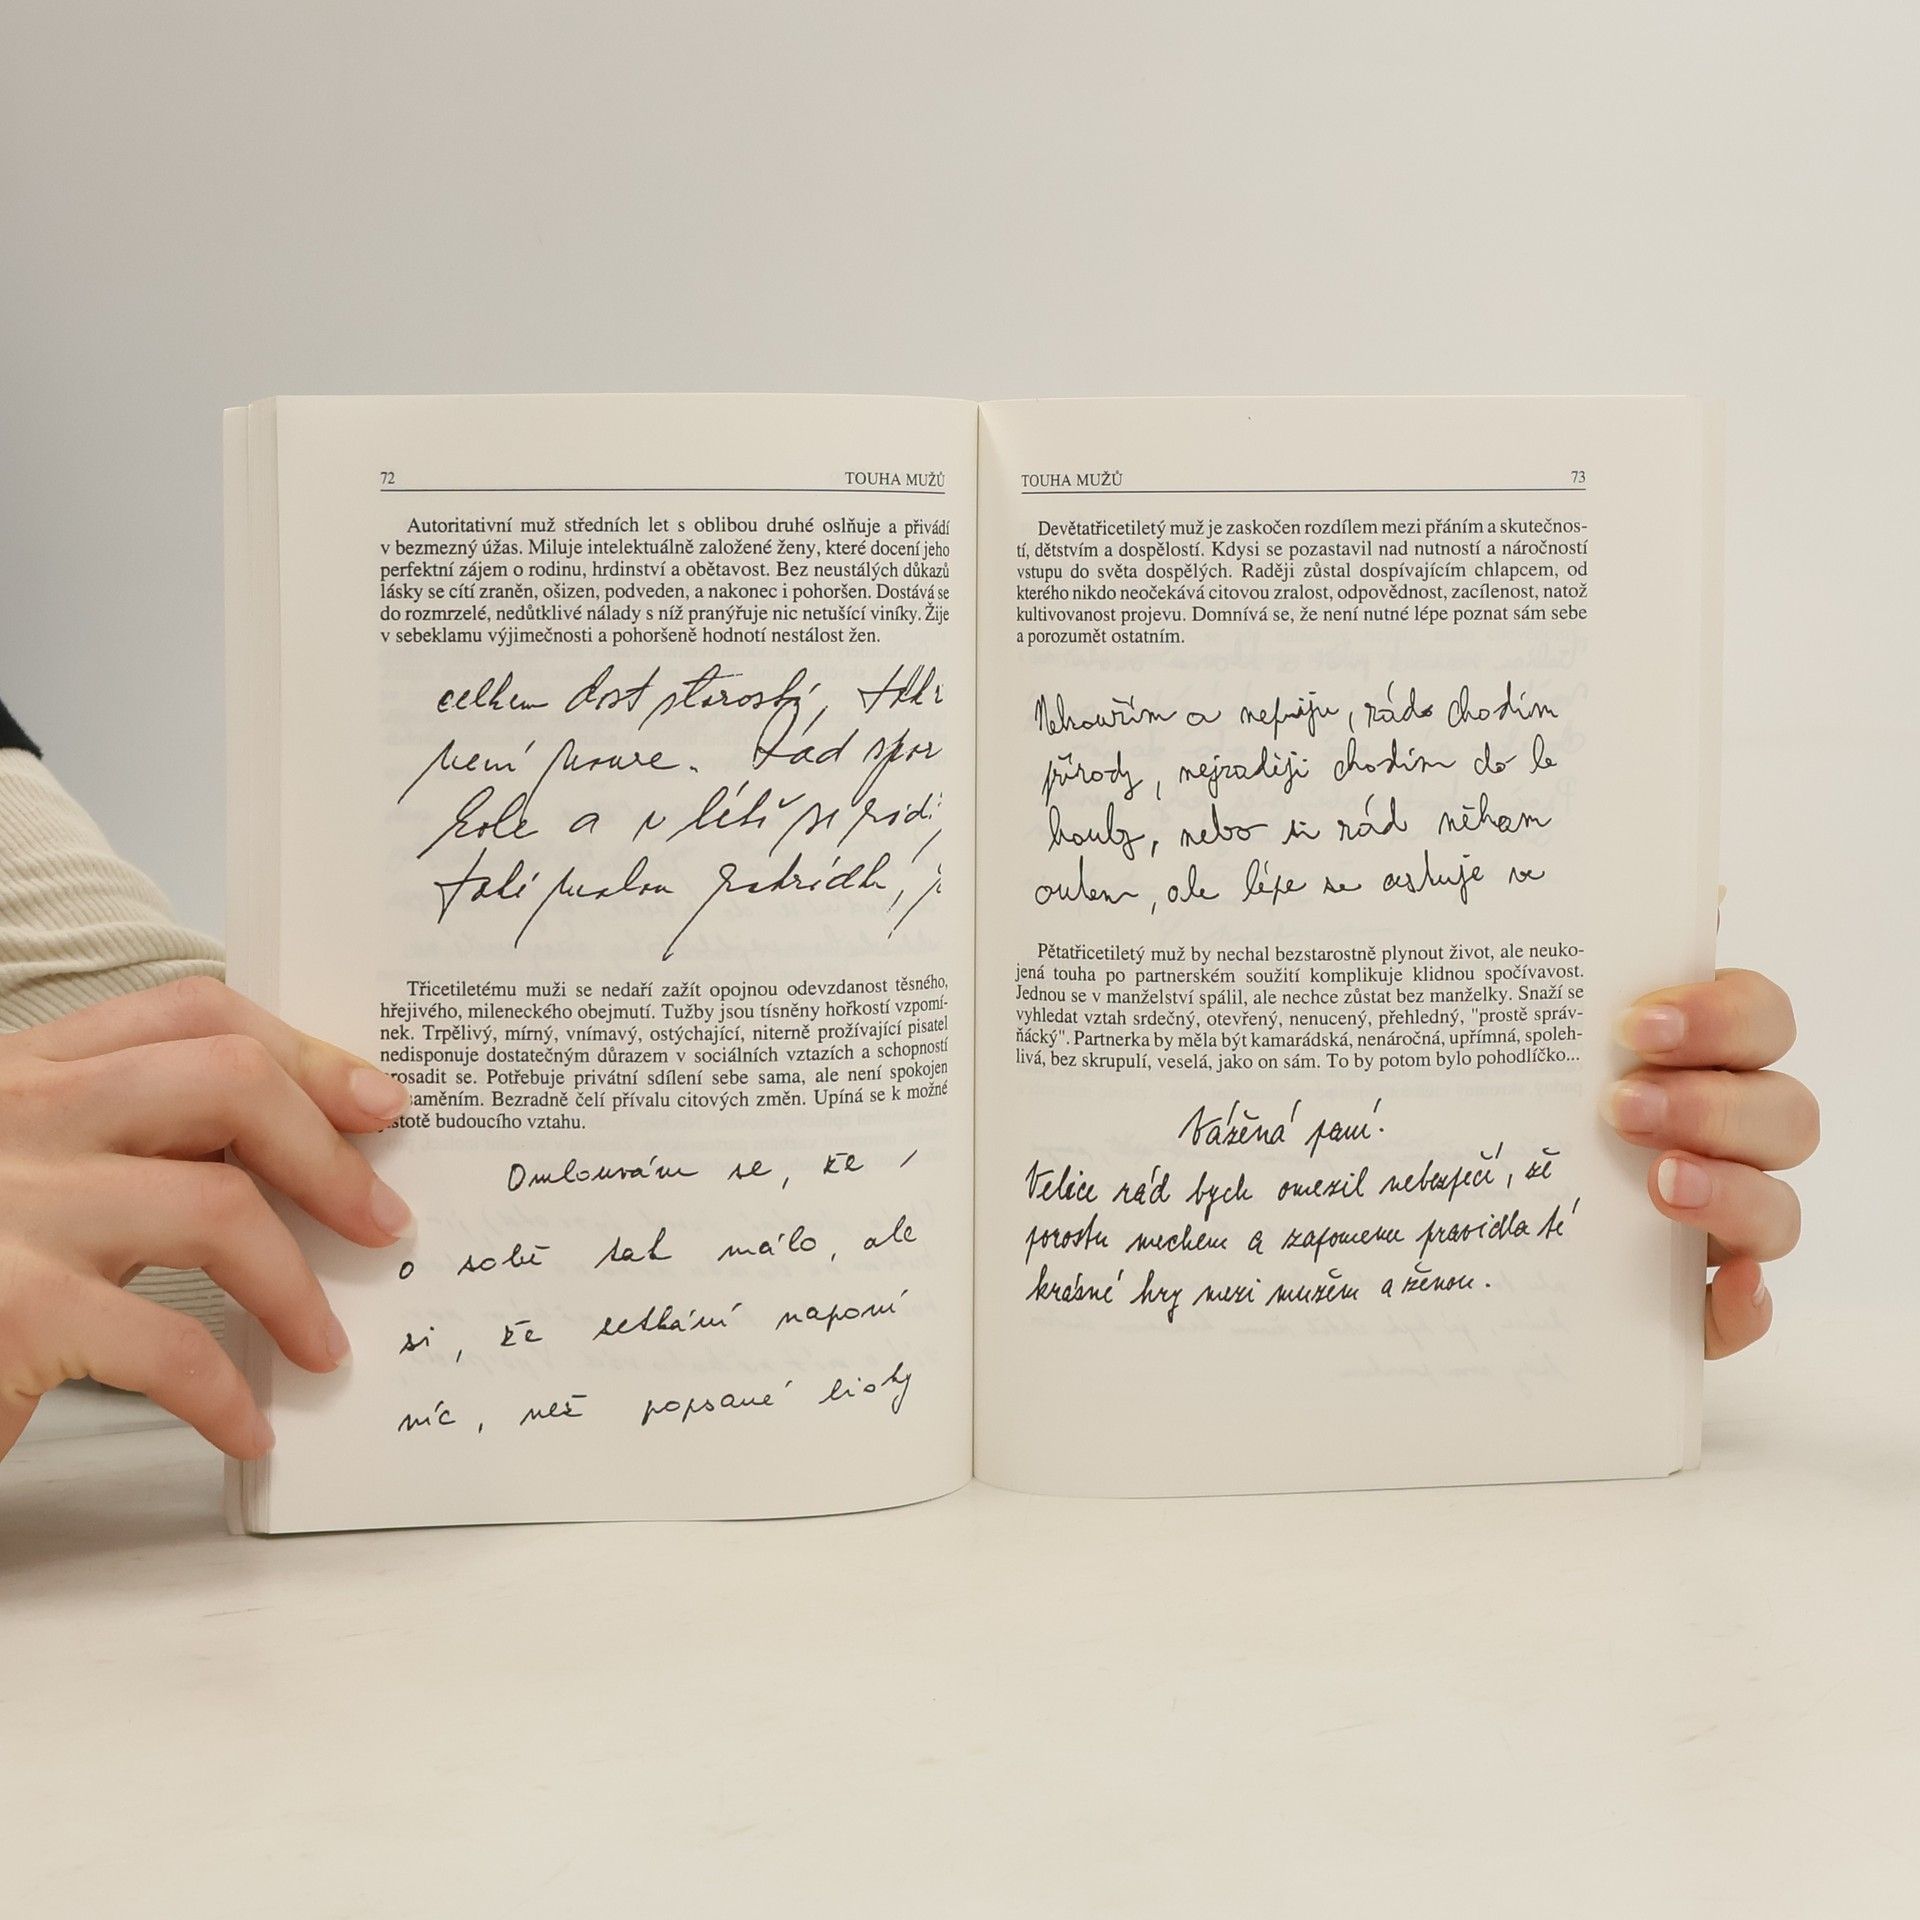 72 TOUHA MUŽŮ
Autoritativní muž středních let s oblibou druhé oslňuje a přivádí
v bezmezný úžas. Miluje intelektuálně založené ženy, které docení jeho
perfektní zájem o rodinu, hrdinství a obětavost. Bez neustálých důkazů
lásky se cítí zraněn, ošizen, podveden, a nakonec i pohoršen. Dostává se
do rozmrzelé, nedůtklivé nálady s níž pranýřuje nic netušící viníky. Žije
v sebeklamu výjimečnosti a pohoršeně hodnotí nestálost žen.
celkem dost starostí,
není nouze. Rád spor
kole a v létě si
malou
Třicetiletému muži se nedaří zažít opojnou odevzdanost těsného,
hřejivého, mileneckého obejmutí. Tužby jsou tísněny hořkostí vzpomí-
nek. Trpělivý, mírný, vnímavý, ostýchající, niterně prožívající pisatel
nedisponuje dostatečným důrazem v sociálních vztazích a schopností
rosadit se. Potřebuje privátní sdílení sebe sama, ale není spokojen
saměním. Bezradně čelí přívalu citových změn. Upíná se k možné
stotě budoucího vztahu.
Omlouvám se, že
o sobě tak málo, ale
si, že setkání napoví
víc, než popsané listy
TOUHA MUŽŮ 73
Devětatřicetiletý muž je zaskočen rozdílem mezi přáním a skutečnos-
tí, dětstvím a dospělostí. Kdysi se pozastavil nad nutností a náročností
vstupu do světa dospělých. Raději zůstal dospívajícím chlapcem, od
kterého nikdo neočekává citovou zralost, odpovědnost, zacílenost, natož
kultivovanost projevu. Domnívá se, že není nutné lépe poznat sám sebe
a porozumět ostatním.
Nekouřím a nepiju, rád chodím
přírody, nejraději chodím do le
houby, nebo si rád někam
autem, ale lépe se cestuje ve
Pětatřicetiletý muž by nechal bezstarostně plynout život, ale neuko-
jená touha po partnerském soužití komplikuje klidnou spočívavost.
Jednou se v manželství spálil, ale nechce zůstat bez manželky. Snaží se
vyhledat vztah srdečný, otevřený, nenucený, přehledný, "prostě správ-
ňácký". Partnerka by měla být kamarádská, nenáročná, upřímná, spoleh-
livá, bez skrupulí, veselá, jako on sám. To by potom bylo pohodlíčko...
Vážená paní.
Velice rád bych omezil nebezpečí, že
porostu mechem a zapomenu pravidla té
krásné hry mezi mužem a ženou.